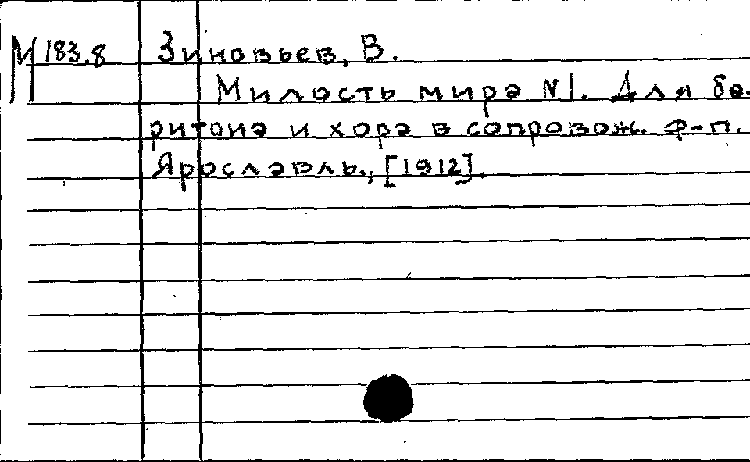 М 183.8 Зиновьев, В.
Милость мира №1. Для ба-
ритона и хора в сопровож. ф-п.
Ярославль., [1912].